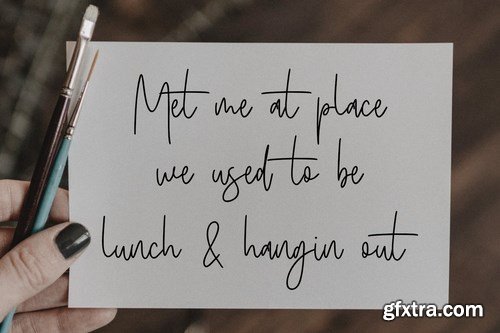 Met me at place
we used to be
lunch & hangin out
gfxtra.com